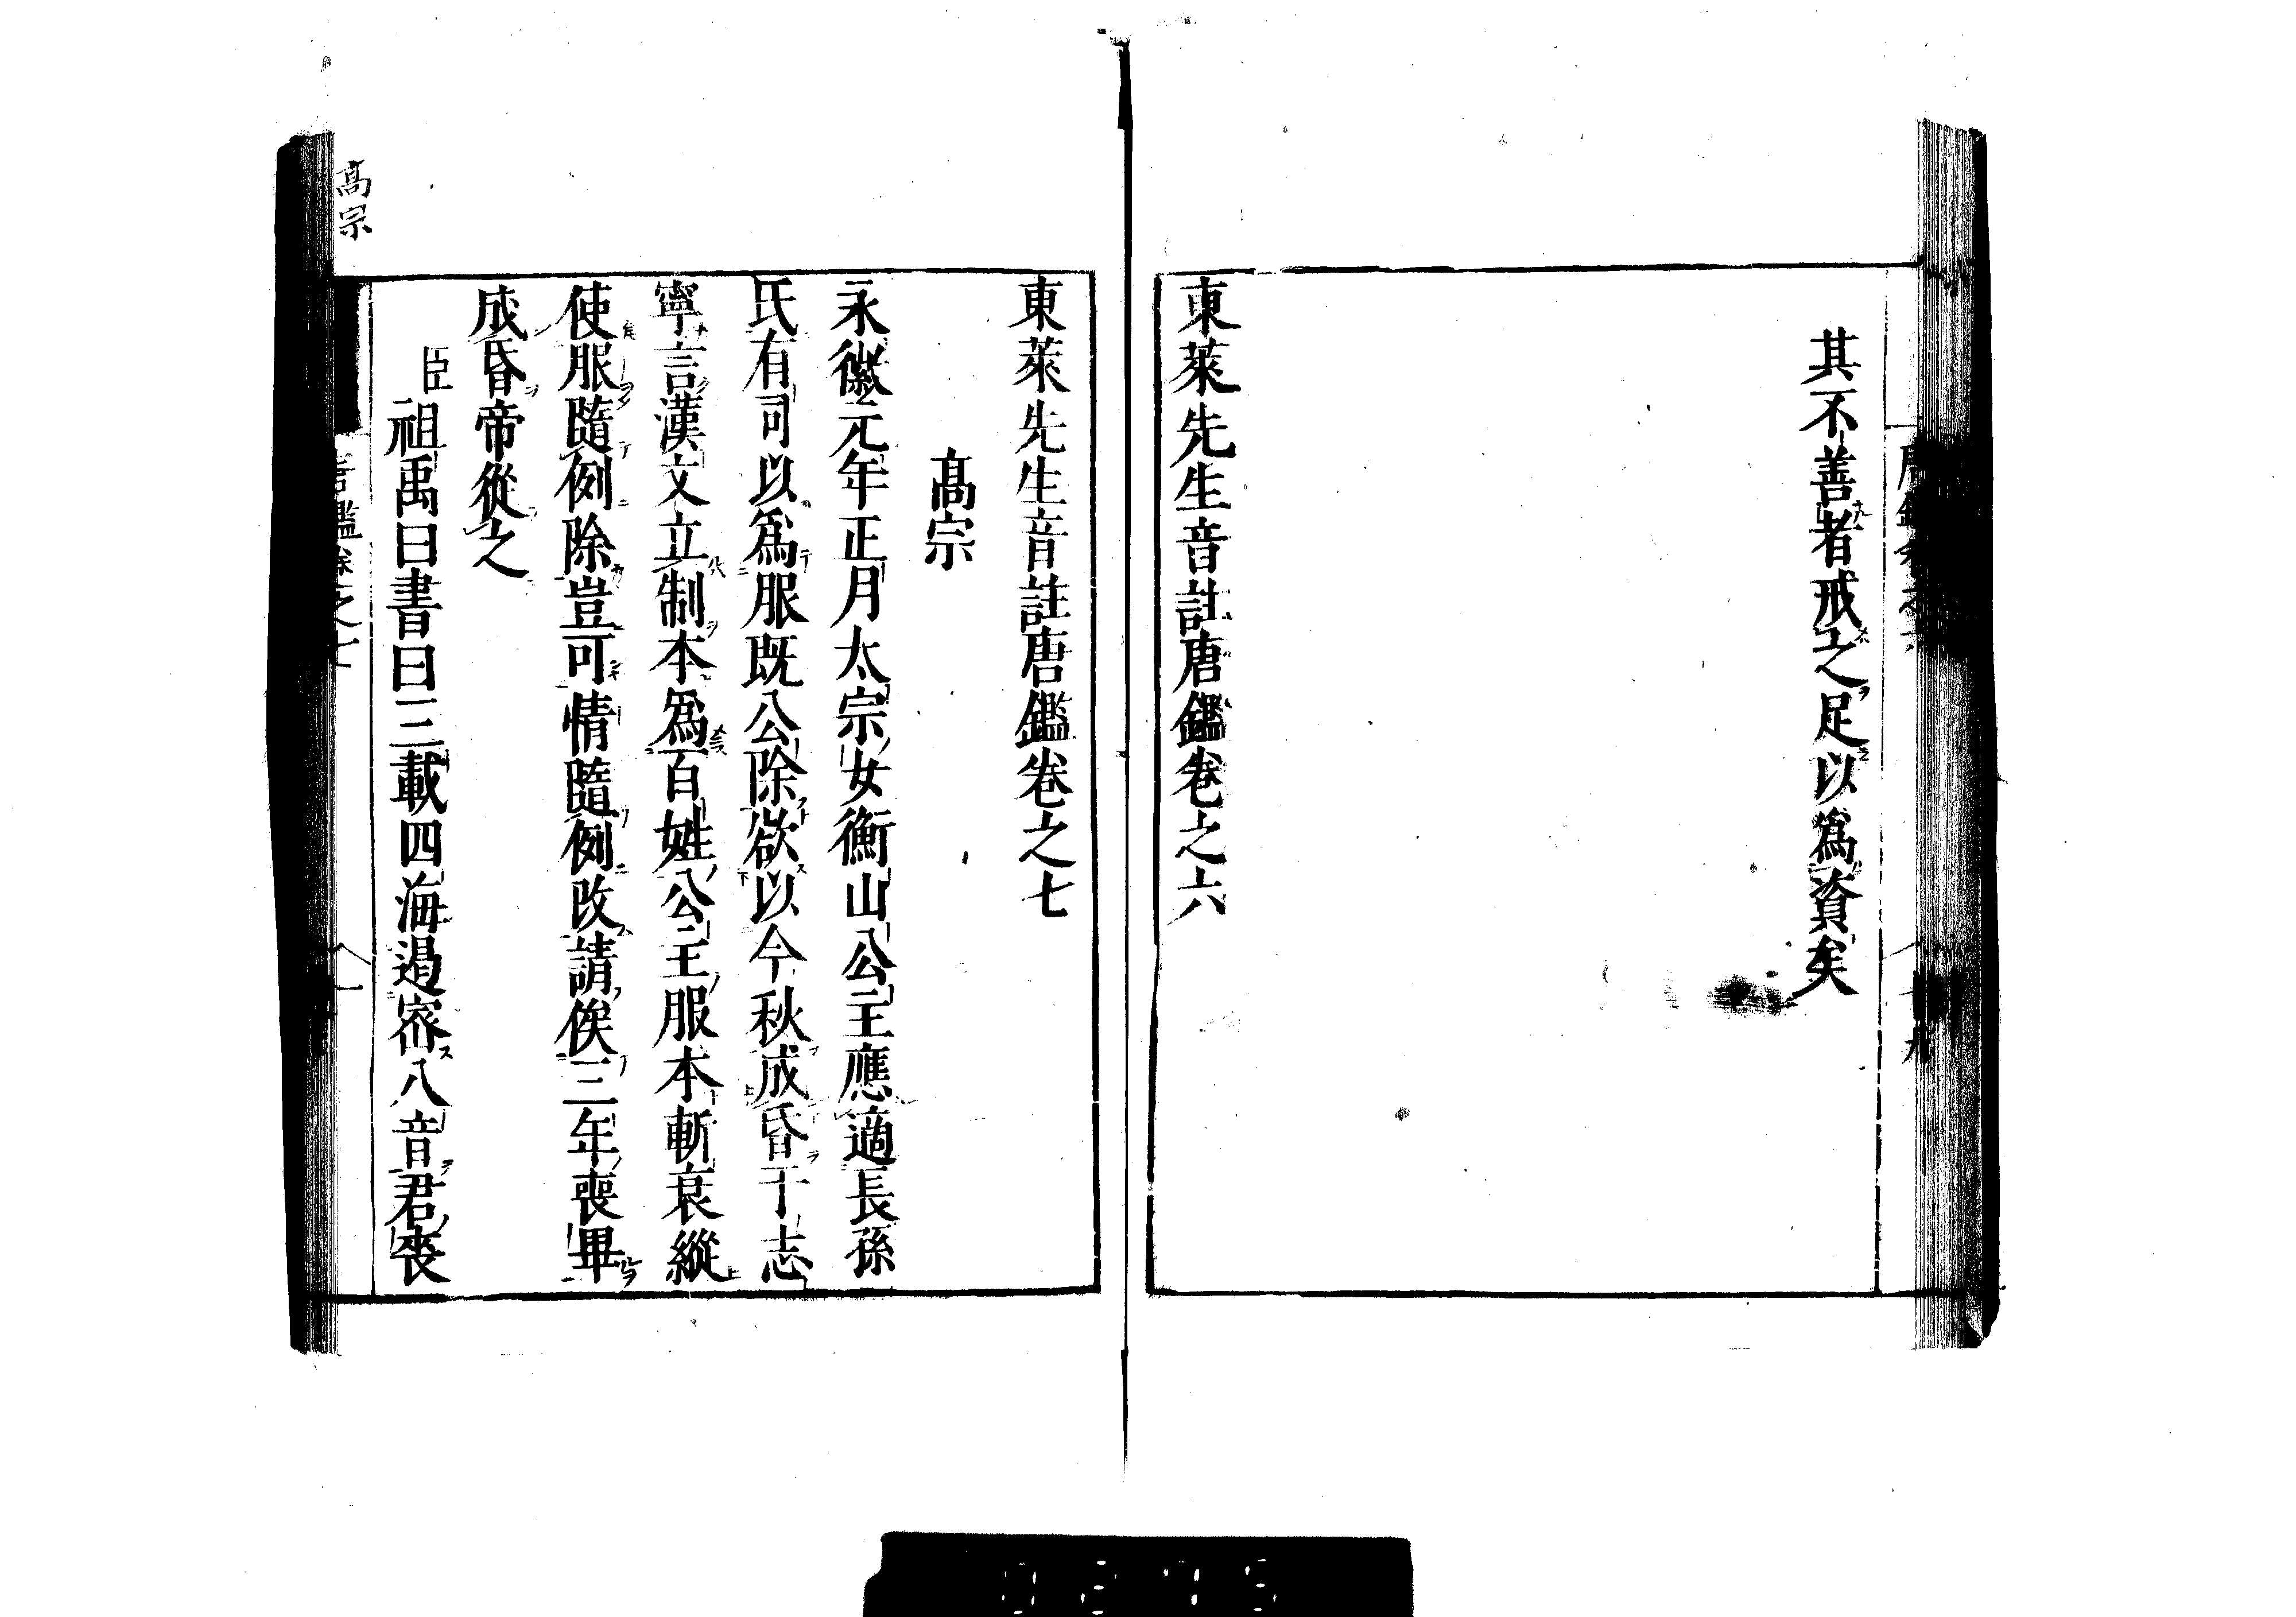 其不善者戒之足以為資矣
東萊先生音註唐鑑卷之六
東萊先生音註唐鑑卷之七
髙宗
永徽元年正月太宗女衡山公主應適長孫
氏有司以爲服既公除欲以今秋成昏于志
寧言漢文立制本爲百姓公主服本斬衰縱
使服隨例除豈可情隨例改請俟三年喪畢
成昏帝從之
臣祖禹曰書曰三載四海遏密八音君喪
髙宗